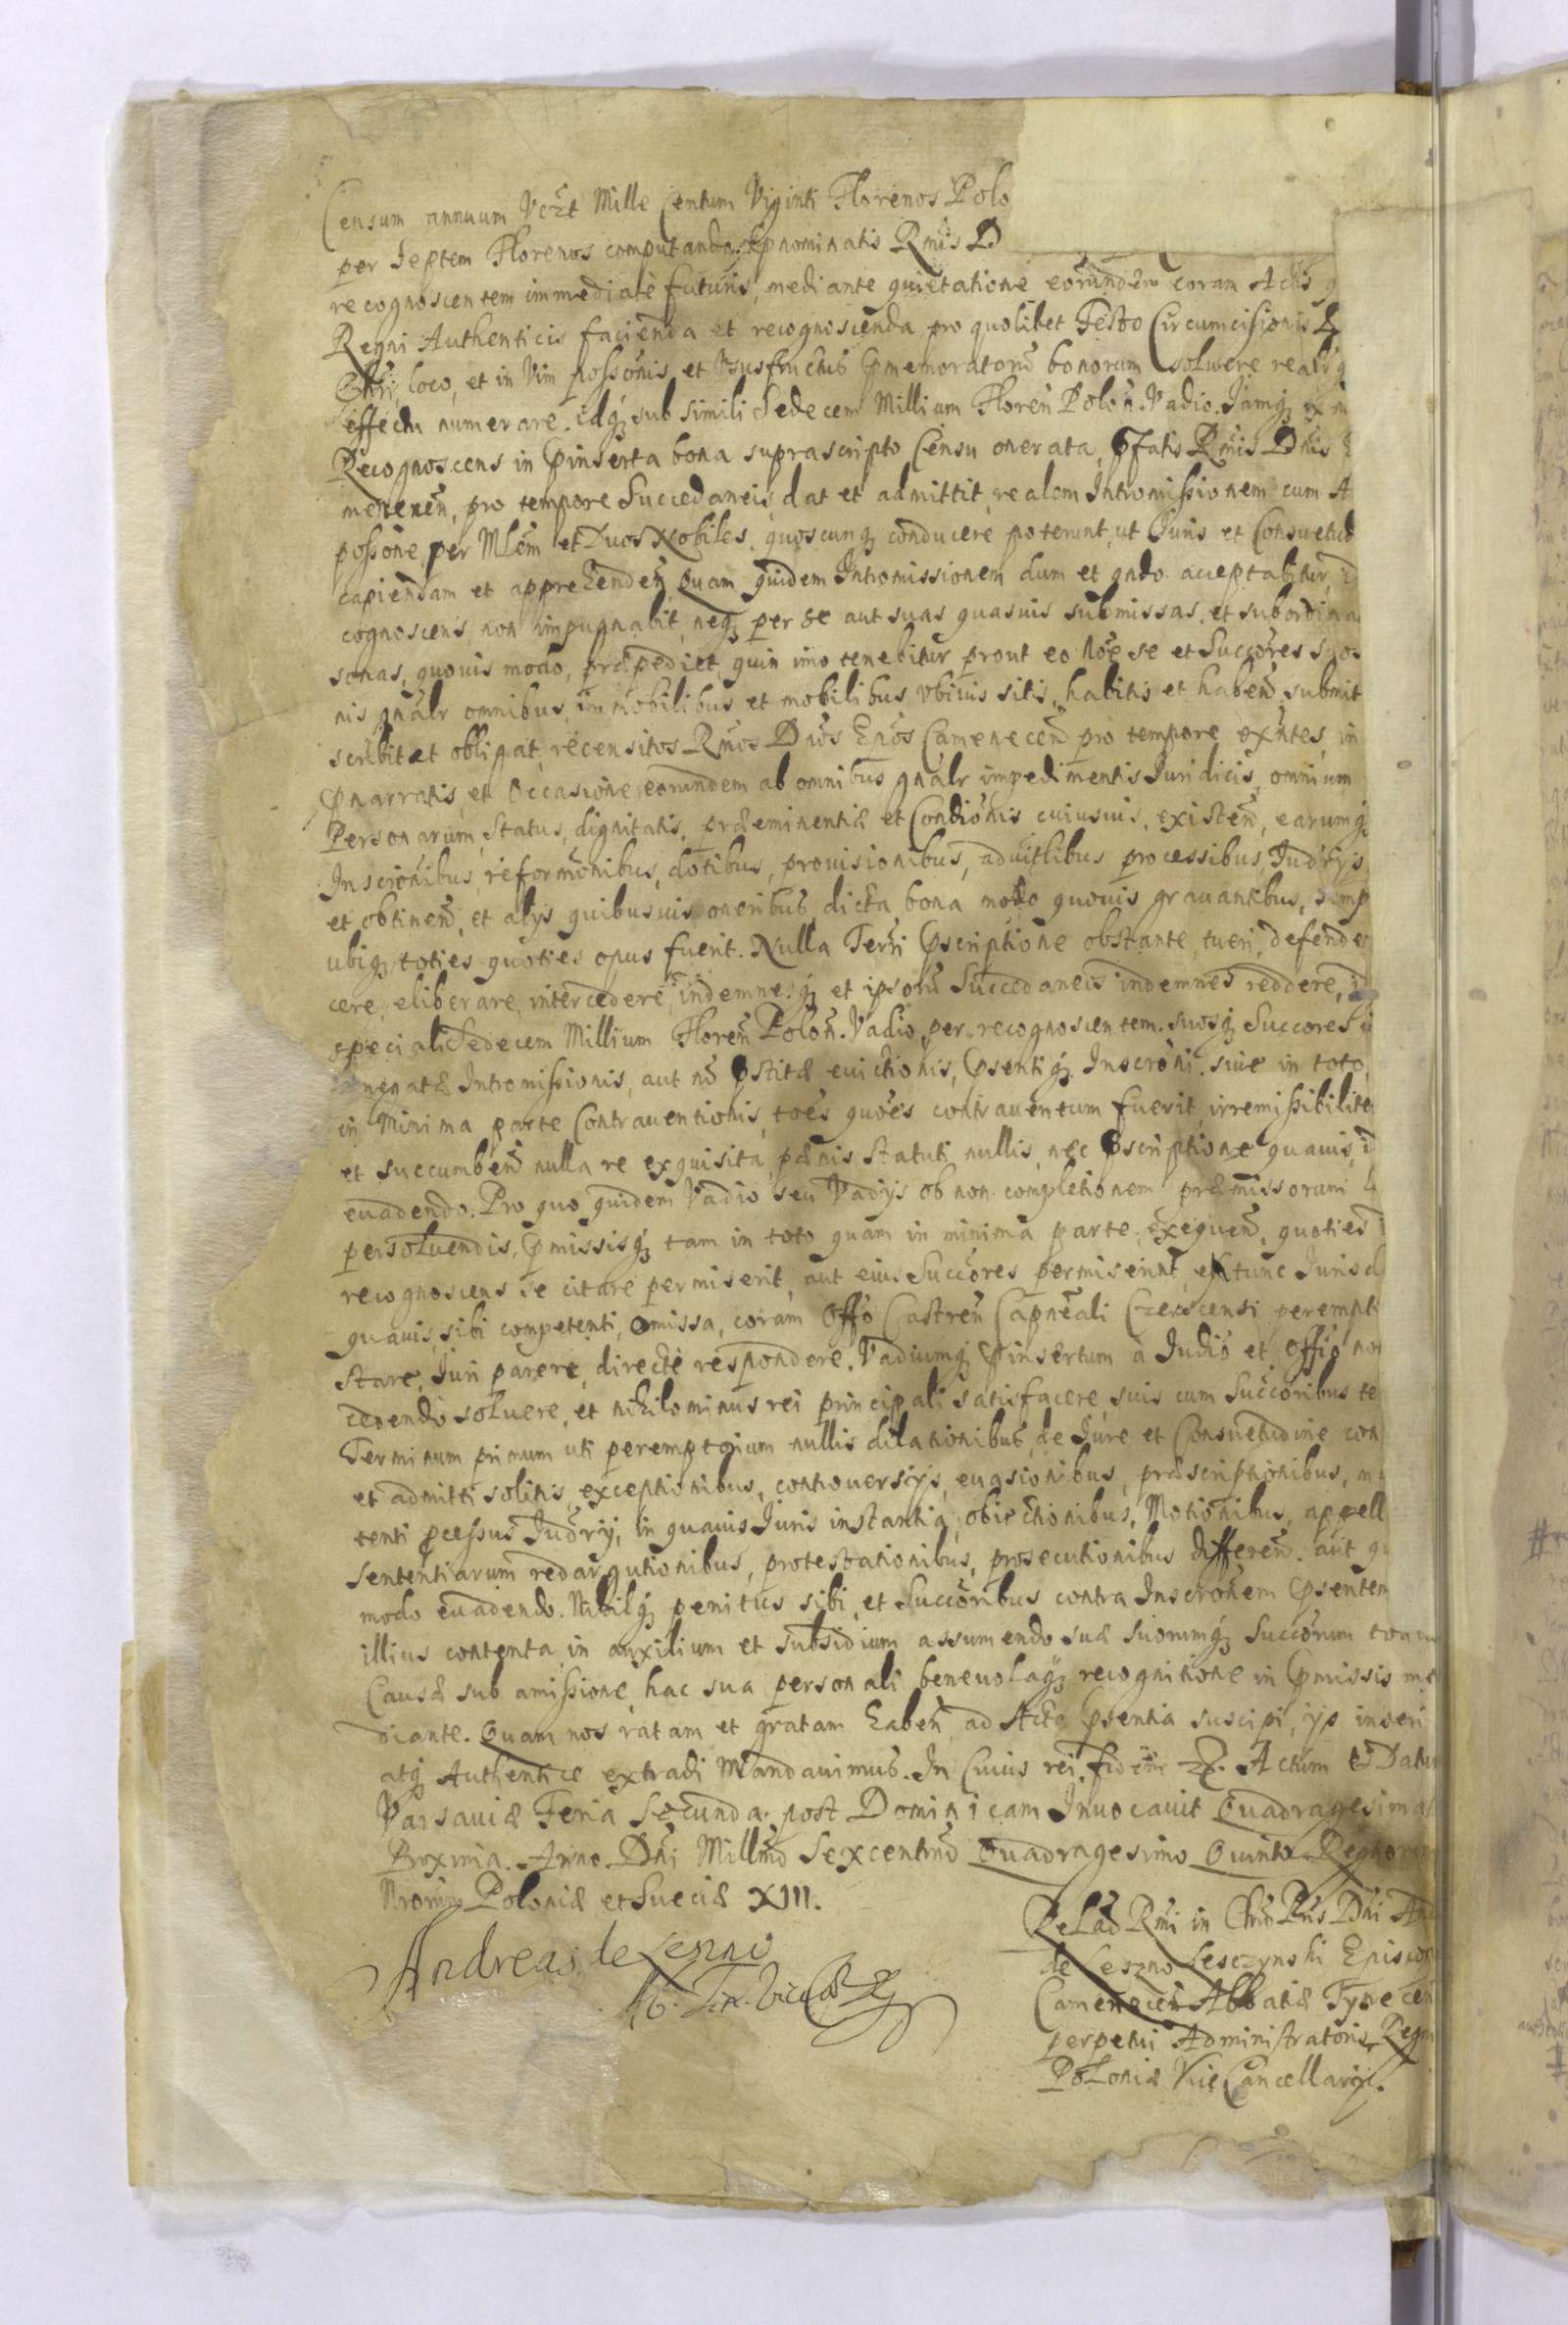 Censum annuum Vczt Mille Centum Viginti Florenos Polo
per Septem Florenos computanda, pnominatis Rmis D
recognoscentem immediatè futuris, mediante quietatione eorundem coram Actis q
Regni Authenticis facienda et recognoscenda pro quolibet Festo Circumcisionis
Chri, loco, et in Vim possonis et Vsusfructus pmemoratorũ bonorum soluere reali
effectu numerare. idq; sub simili Sedecem Millium Floren Polon. Vadio. Jamq;
Recognoscens in pinserta bona suprascripto Censu onerata, pfatis Rmis Dnis
menecen, pro tempore Succedaneis, dat et admittit, realem Intromissionem cum A
possone, per Mlem et Duos Nobiles, quoscunq; conducere poterint, ut Iuris et Consuetud
capiendam et apprehenden Quam quidem Intromissionem dum et qndo acceptabitur, i
cognoscens, non impugnabit, neq; per se aut suas quasuis submissas, et subordina
sonas, quouis modo, præpediet, quin imo tenebitur, prout eo noe se et Succores suos
nis gnalr omnibus, immobilibus et mobilibus vbiuis sitis, habitis et haben submit
scribit et obligat, recensitos Rmos Dnos Epos Camenecen pro tempore exntes, in
pnarratis, et Occasione eorundem ab omnibus gnalr impedimentis Iuridicis, omnium
Personarum, Status, dignitatis, præeminentiæ et Condionis cuiusuis, existen, earumq;
Inscrionibus, reformonibus, dotibus, prouisionibus, aduitlibus processibus, Iudrijs
et obtinen, et alijs quibusuis oneribus, dicta bona modo quouis grauantibus, semp
ubiq; toties quoties opus fuerit. Nulla Terri pscriptione obstante, tueri, defende
cere, eliberare, intercedere, indemnesq; et ipsorũ Succedaneis indemnes reddere, i
speciali Sedecem Millium Floren Polon. Vadio, per recognoscentem. suosq; Succores
negatæ Intromissionis, aut nõ pstitæ euictionis, psentiq; Inscroni. siue in toto,
in Minima parte Contrauentionis, toes quoes contrauentum fuerit, irremissibilite
et succumben nulla re exquisita, pænis Statuti nullis, nec pscriptione quauis, i
euadendo. Pro quo quidem Vadio seu Vadijs ob non completionem præmissorum
persoluendis, pmissisq; tam in toto quam in minima parte, exequen, quoties
recognoscens se citare permiserit, aut eius Succores permiserint, extunc Iurisd
quauis sibi competenti, omissa, coram Offo Castren Capneali Czerscensi perempti
Stare, Iuri parere, directè respondere. Vadiumq; pinsertum a Iudio et Offio non
cedendo soluere, et nihilominus rei principali satisfacere, suis cum Succoribus te
Terminum primum uti peremptorium nullis dilationibus, de Iure et Consuetudine con
et admitti solitis, exceptionibus, controuersijs, euasionibus, præscriptionibus, m
tenti pcessus Iudrij, in quauis Iuris instantia, obiectionibus, Motionibus, appell
sententiarum redargutionibus, protestationibus, prosecutionibus differen. aut q
modo euadendo. Nihilq; penitus sibi, et Succoribus contra Inscronem psentem
illius contenta, in auxilium et subsidium assumendo suæ suorumq; Succorum
Causæ sub amissione, hac sua personali beneuolaq; recognitione in pmissis me
diante. Quam nos ratam et gratam haben ad Acta psentia suscipi, ijs inseri
atq; Authentice extradi Mandauimus. In Cuius rei fidem &. Actum et Datum
Varsauiæ Feria Secunda post Dominicam Inuocauit Quadragesima
Proxima. Anno Dni Millmo Sexcentmo Quadragesimo Quinto Regnorum
Nrorum Poloniæ et Sueciæ XIII.
Andreas de Leszno
Relao Rmi in Chro Pris Dni And
de Leszno Lesczynski Episcop
Camenecen Abbatiæ Tynecen
perpetui Administratoris, Regni
Poloniæ Vice Cancellarij.